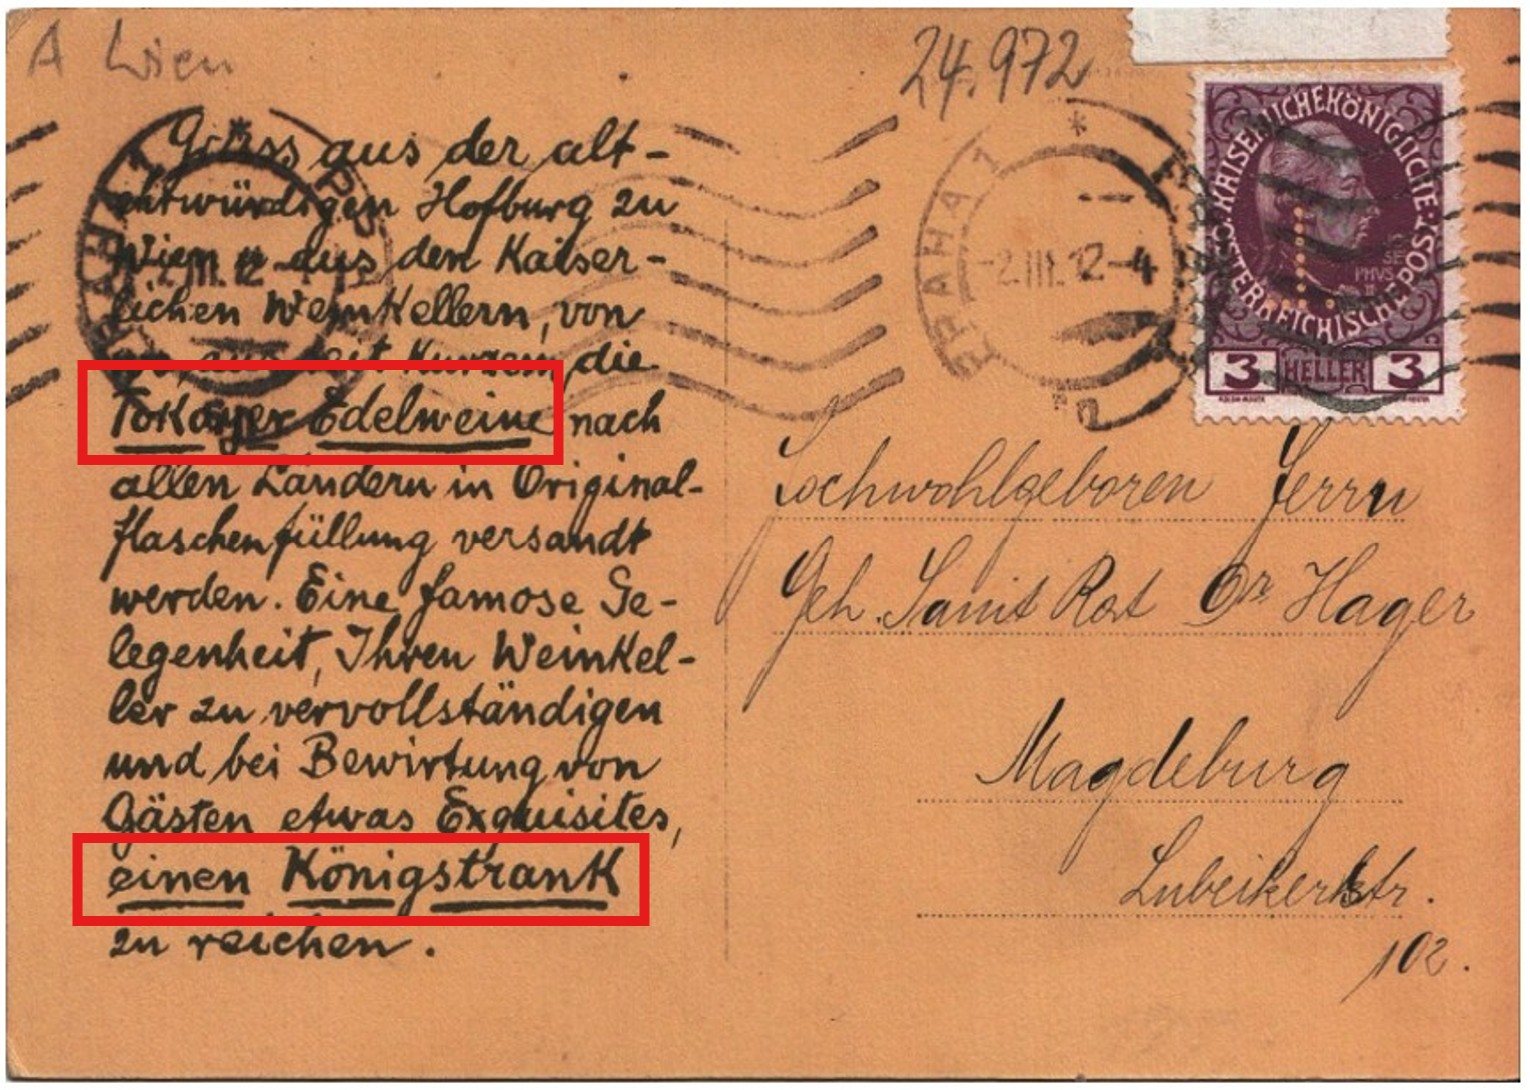 A Wien
24.972
Gruss aus der alt-
ehrwürdigen Hofburg zu
Wien u aus den Kaiser-
lichen Weinkellern, von
aus seit Kurzem die
Tokayer Edelweine nach
allen Ländern in Original-
flaschenfüllung versandt
werden. Eine famose Ge-
legenheit, Ihren Weinkel-
ler zu vervollständigen
und bei Bewirtung von
Gästen etwas Exquisites,
einen Königstrank
zu reichen.
PRAHA 1
2.III.12-4
KAISERLICHEKÖNIGLICHE
ÖSTERREICHISCHE POST
3 HELLER 3
Hochwohlgeboren Herrn
Geh. Sanit Rat Dr Hager
Magdeburg
102.